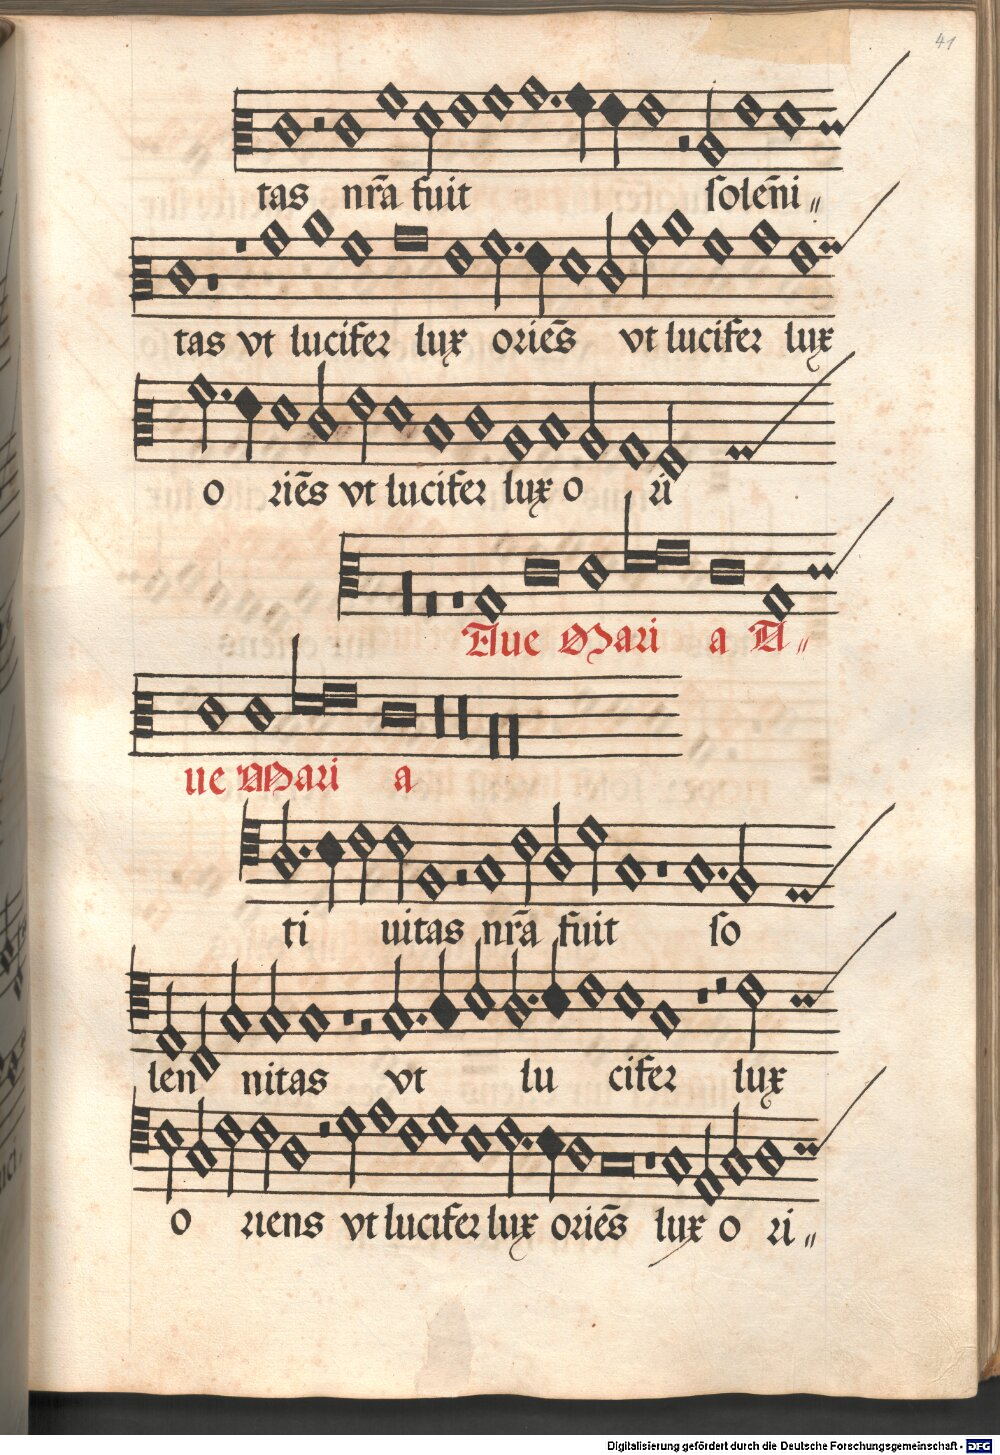 41
tas nr̃a fuit ſoleñi〃
tas vt lucifer lux orieñs vt lucifer lux
o rieñs vt lucifer lux o ri
Aue Mari a A〃
ue Mari a
ti uitas nr̃a fuit ſo
len nitas vt lu cifer lux
o riens vt lucifer lux orieñs lux o ri〃
Digitalisierung gefördert durch die Deutsche Forschungsgemeinschaft - DFG